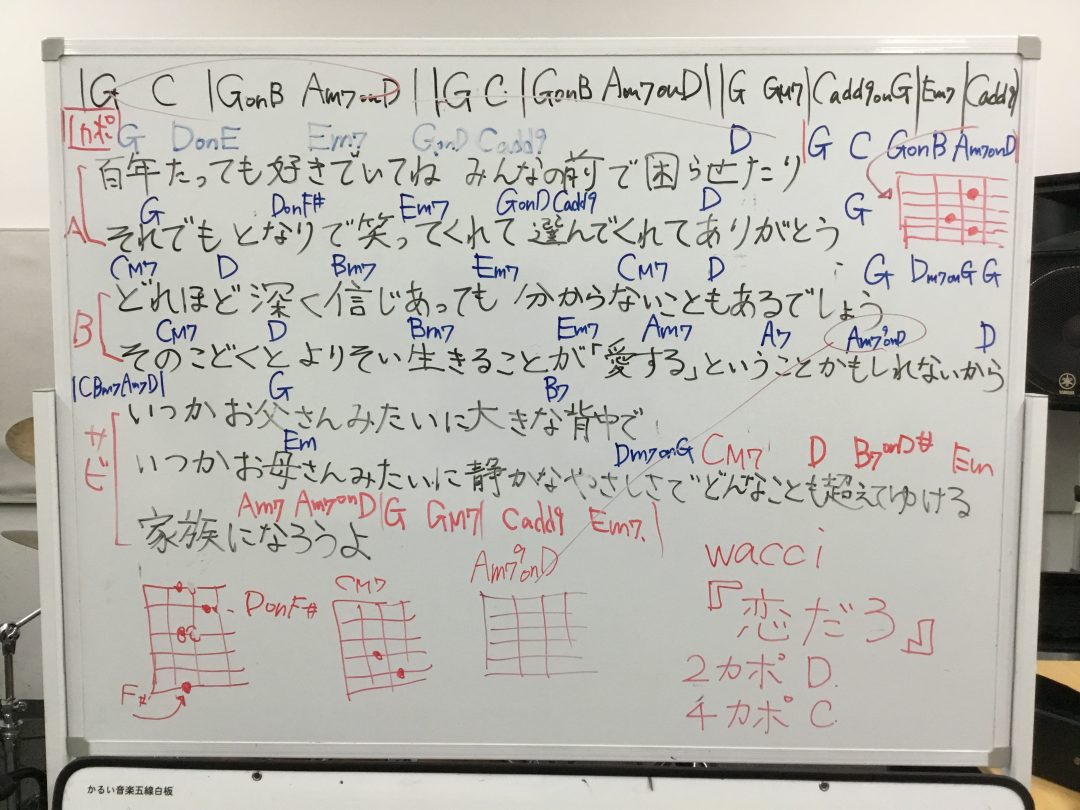 |G C |GonB Am7onD||G C|GonB Am7onD||G GM7|Cadd9onG|Em7|Cadd9|
1カポ G DonE Em7 GonD Cadd9 D |G C GonB Am7onD|
百年たっても好きでいてね みんなの前で困らせたり
G DonF# Em7 GonD Cadd9 D G
A それでもとなりで笑ってくれて 選んでくれてありがとう
CM7 D Bm7 Em7 CM7 D G Dm7onG G
どれほど深く信じあっても 分からないこともあるでしょう
B CM7 D Bm7 Em7 Am7 A7 Am7 9onD D
そのこどくとよりそい生きることが「愛する」ということかもしれないから
|CBm7Am7D| G B7
いつかお父さんみたいに大きな背中で
サビ Em Dm7onG CM7 D B7onD# Em
いつかお母さんみたいに静かなやさしさでどんなことも超えてゆける
Am7 Am7onD|G GM7| Cadd9 Em7.|
家族になろうよ
DonF#
F#
CM7
Am7 9onD
wacci
『恋だろ』
2カポ D.
4カポ C.
YAMAHA
かるい音楽五線白板